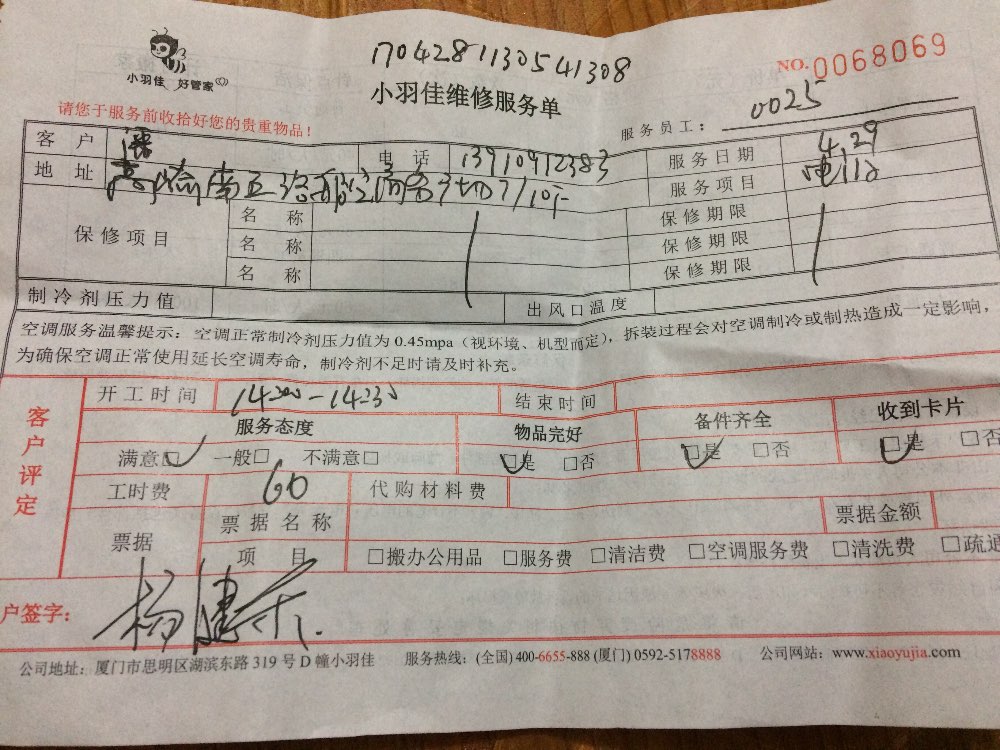 170428113054 1308
小羽佳 好管家
NO.0068069
小羽佳维修服务单
请您于服务前收拾好您的贵重物品！
服务员工： 0025
客户 潘 电话 13910912383 服务日期 4.29
地址 服务项目
保修项目 名称 保修期限
名称 保修期限
名称 保修期限
制冷剂压力值 出风口温度
空调服务温馨提示：空调正常制冷剂压力值为 0.45mpa（视环境、机型而定），拆装过程会对空调制冷或制热造成一定影响，
为确保空调正常使用延长空调寿命，制冷剂不足时请及时补充。
客户评定
开工时间 14:00-14:30 结束时间
服务态度 物品完好 备件齐全 收到卡片
满意☑ 一般□ 不满意□ ☑是 □否 ☑是 □否 ☑是 □否
工时费 60 代购材料费
票据 票据名称 票据金额
项目 □搬办公用品 □服务费 □清洁费 □空调服务费 □清洗费 □疏通
户签字：
公司地址：厦门市思明区湖滨东路 319 号 D 幢小羽佳 服务热线：(全国) 400-6655-888 (厦门) 0592-5178888 公司网站：www.xiaoyujia.com